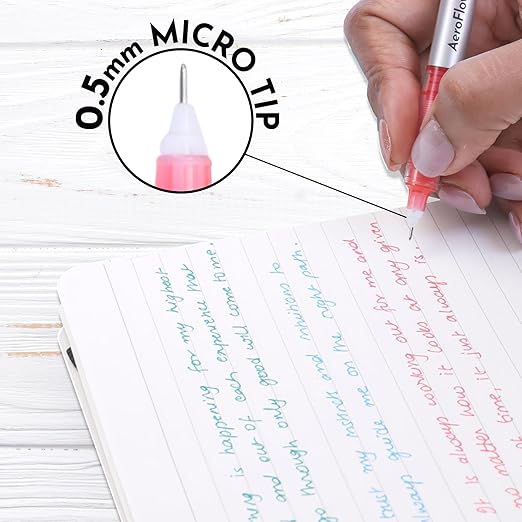 0.5mm MICRO TIP
AeroFlo
is happening for my highest
and out of each experience that
go through only good will come to me.
trust my instincts and intuitions to
always guide me on the right path.
is always working out for me and
no matter how it looks at any given
time, it just always is.